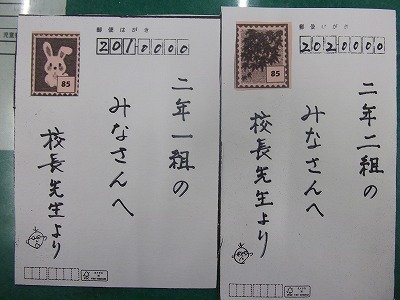 郵便はがき
201-0000
85
二年一組の
みなさんへ
校長先生より
郵便はがき
202-0000
85
二年二組の
みなさんへ
校長先生より